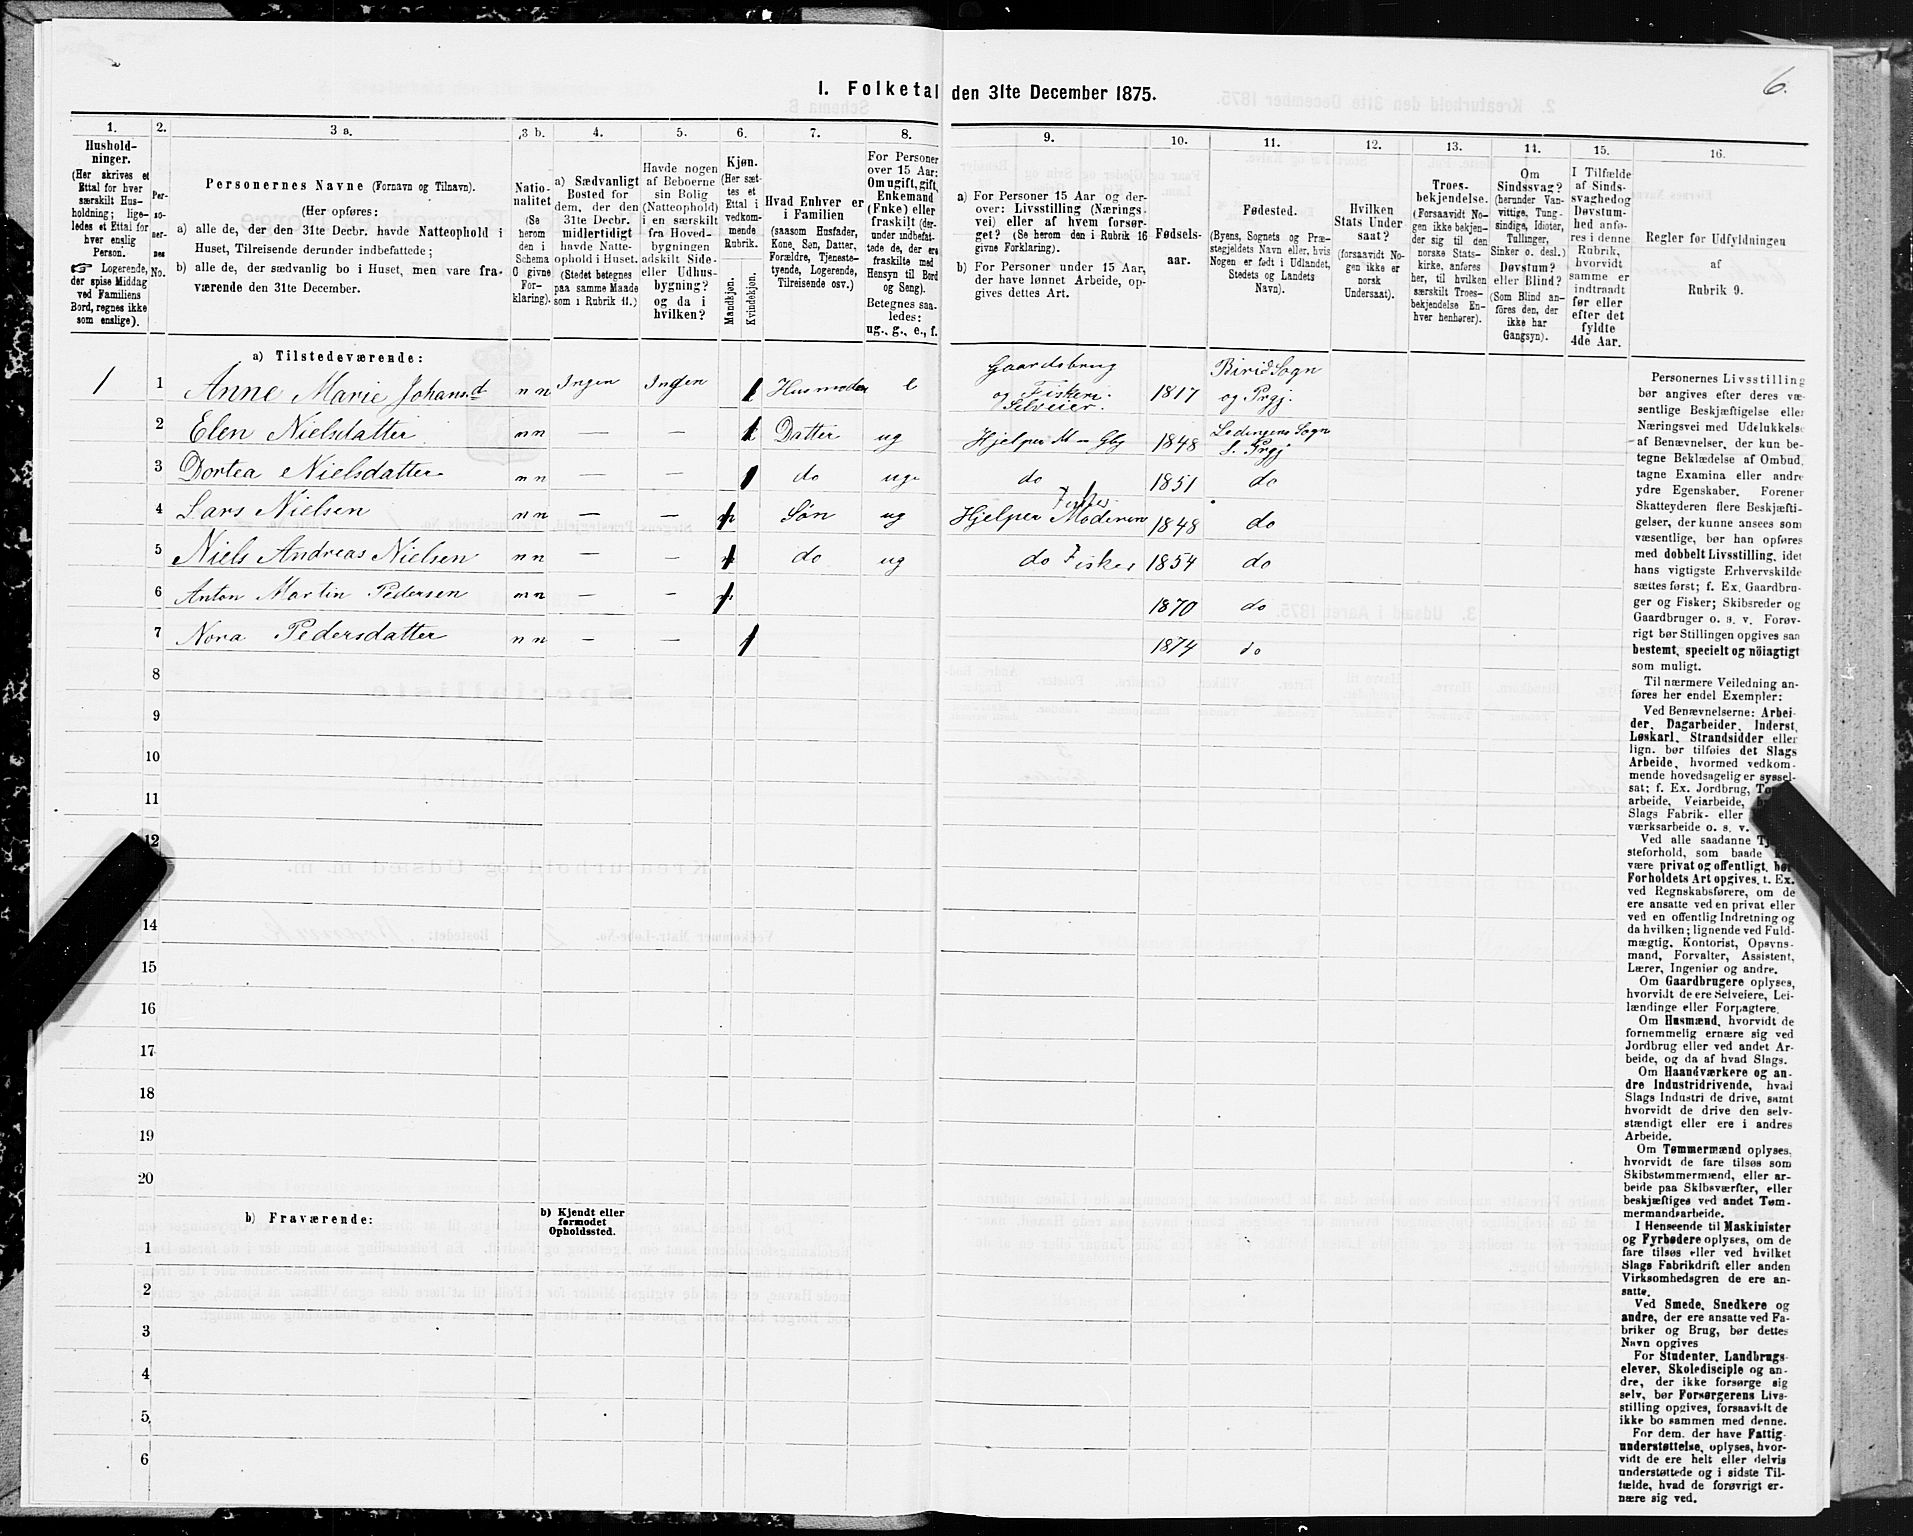 6.
I. Folketal den 31te December 1875.
1. 2. 3 a. 3 b. 4. 5. 6. 7. 8. 9. 10. 11. 12. 13. 14. 15. 16.
Hushold-
ninger.
(Her skrives et
Ettal for hver
særskilt Hus-
holdning; lige-
ledes et Ettal for
hver enslig
Person.
☞ Logerende,
der spise Middag
ved Familiens
Bord, regnes ikke
som enslige).
Per-
so-
ner-
nes
No.
Personernes Navne (Fornavn og Tilnavn).
(Her opføres:
a) alle de, der den 31te Decbr. havde Natteophold i
Huset, Tilreisende derunder indbefattede;
b) alle de, der sædvanlig bo i Huset, men vare fra-
værende den 31te December.
Natio-
nalitet
(Se
herom
den i
Schema
O givne
For-
klaring).
a) Sædvanligt
Bosted for
dem, der den
31te Decbr.
midlertidigt
havde Natte-
ophold i Huset.
(Stedet betegnes
paa samme Maade
som i Rubrik 11.)
Havde nogen
af Beboerne
sin Bolig
(Natteophold)
i en særskilt
fra Hoved-
bygningen
adskilt Side-
eller Udhus-
bygning?
og da i
hvilken?
Kjøn.
(Her sæt-
tes et
Ettal i
vedkom-
mende
Rubrik.
Mandkjøn.
Kvindekjøn.
Hvad Enhver er
i Familien
(saasom Husfader,
Kone, Søn, Datter,
Forældre, Tjeneste-
tyende, Logerende,
Tilreisende osv.)
For Personer
over 15 Aar:
Om ugift, gift,
Enkemand
(Enke) eller
fraskilt (der-
under indbefat-
tede de, der ere
fraskilte med
Hensyn til Bord
og Seng).
Betegnes saa-
ledes:
ug., g., e., f.
a) For Personer 15 Aar og der-
over: Livsstilling (Nærings-
vei) eller af hvem forsør-
get? (Se herom den i Rubrik 16
givne Forklaring).
b) For Personer under 15 Aar,
der have lønnet Arbeide, op-
gives dettes Art.
Fødsels-
aar.
Fødested.
(Byens, Sognets og Præ-
stegjeldets Navn eller, hvis
Nogen er født i Udlandet,
Stedets og Landets
Navn).
Hvilken
Stats Under
saat?
(forsaavidt No-
gen ikke er
norsk
Undersaat).
Troes-
bekjendelse.
(Forsaavidt No-
gen ikke bekjen-
der sig til den
norske Stats-
kirke, anføres
her, til hvilken
særskilt Troes-
bekjendelse En-
hver henhører).
Om
Sindssvag?
(herunder Van-
vittige, Tung-
sindige, Idioter,
Tullinger,
Sinker o. desl.)
Døvstum?
eller Blind?
(Som Blind an-
føres den, der
ikke har
Gangsyn).
I Tilfælde
af Sinds-
svaghed og
Døvstum-
hed anfø-
res i denne
Rubrik,
hvorvidt
samme er
indtraadt
før eller
efter det
fyldte
4de Aar.
Regler for Udfyldningen
af
Rubrik 9.
a) Tilstedeværende:
1 1 Anne Marie Johansd. nn Ingen Ingen 1 Husmoder e Gaardsbrug og Fiskeri. Selveier. 1817 Birid Sogn og Prgj.
2 Elen Nielsdatter nn — — 1 Datter ug Hjelper M — Gbg 1848 Lødingens Sogn o. Prgj
3 Dortea Nielsdatter nn — — 1 do ug do 1851 do
4 Lars Nielsen nn — — 1 Søn ug Hjelper Moderen Fisker 1848 do
5 Niels Andreas Nielsen nn — — 1 do ug do Fisker 1854 do
6 Anton Martin Pedersen nn — — 1 1870 do
7 Nora Pedersdatter nn — — 1 1874 do
8
9
10
11
12
14
15
16
17
18
19
20
b) Fraværende:
b) Kjendt eller
formodet
Opholdssted.
1
2
3
4
5
6
Personernes Livsstilling
bør angives efter deres væ-
sentlige Beskjæftigelse eller
Næringsvei med Udelukkelse
af Benævnelser, der kun be-
tegne Beklædelse af Ombud,
tagne Examina eller andre
ydre Egenskaber. Forener
Skatteyderen flere Beskjæfti-
gelser, der kunne ansees som
væsentlige, bør han opføres
med dobbelt Livsstilling, idet
hans vigtigste Erhvervskilde
sættes først; f. Ex. Gaardbru-
ger og Fisker; Skibsreder og
Gaardbruger o. s. v. Forøv-
rigt bør Stillingen opgives saa
bestemt, specielt og nöiagtigt
som muligt.
Til nærmere Veiledning an-
føres her endel Exempler:
Ved Benævnelserne: Arbei-
der, Dagarbeider, Inderst,
Løskarl, Strandsidder eller
lign. bør tilføies det Slags
Arbeide, hvormed vedkom-
mende hovedsagelig er syssel-
sat; f. Ex. Jordbrug,
arbeide, Veiarbeide,
Slags Fabrik- eller
værksarbeide o. s. v.
Ved alle saadanne
steforhold, som baade
være privat og offentligt, bør
Forholdets Art opgives, t. Ex.
ved Regnskabsførere, om de
ere ansatte ved en privat eller
ved en offentlig Indretning og
da hvilken; lignende ved Fuld-
mægtig, Kontorist, Opsyns-
mand, Forvalter, Assistent,
Lærer, Ingeniør og andre.
Om Gaardbrugere oplyses,
hvorvidt de ere Selveiere, Lei-
lændinge eller Forpagtere.
Om Husmænd, hvorvidt de
fornemmelig ernære sig ved
Jordbrug eller ved andet Ar-
beide, og da af hvad Slags.
Om Haandværkere og an-
dre Industridrivende, hvad
Slags Industri de drive, samt
hvorvidt de drive den selv-
stændigt eller ere i andres
Arbeide.
Om Tømmermænd oplyses,
hvorvidt de fare tilsøs som
Skibstømmermænd, eller ar-
beide paa Skibsværfter, eller
beskjæftiges ved andet Tøm-
mermandsarbeide.
I Henseende til Maskinister
og Fyrbødere oplyses, om de
fare tilsøs eller ved hvilket
Slags Fabrikdrift eller anden
Virksomhedsgren de ere an-
satte.
Ved Smede, Snedkere og
andre, der ere ansatte ved Fa-
briker og Brug, bør dettes
Navn opgives
For Studenter, Landbrugs-
elever, Skoledisciple og an-
dre, der ikke forsørge sig
selv, bør Forsørgerens Livs-
stilling opgives, forsaavidt de
ikke bo sammen med denne.
For dem, der have Fattig-
understøttelse, oplyses, hvor-
vidt de ere helt eller delvis
understøttede og i sidste Til-
fælde, hvad de forøvrigt er-
nære sig ved.